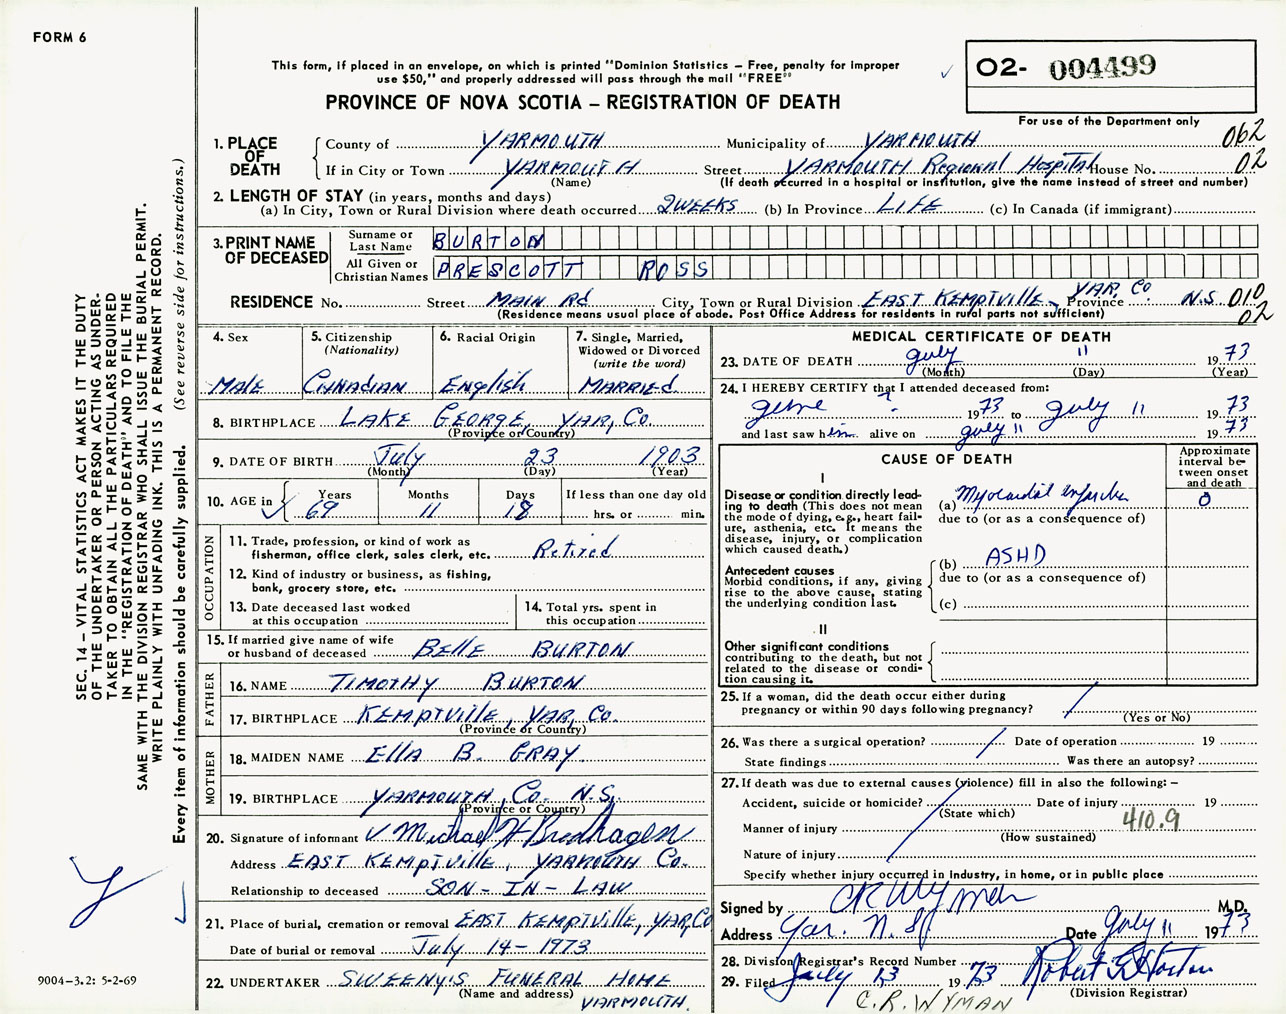 FORM 6
This form, if placed in an envelope, on which is printed "Dominion Statistics – Free, penalty for improper
use $50," and properly addressed will pass through the mail "FREE"
PROVINCE OF NOVA SCOTIA – REGISTRATION OF DEATH
02- 004499
For use of the Department only
062
02
1. PLACE OF DEATH
County of YARMOUTH Municipality of YARMOUTH
If in City or Town YARMOUTH Street YARMOUTH Regional Hospital House No.
(Name) (If death occurred in a hospital or institution, give the name instead of street and number)
2. LENGTH OF STAY (in years, months and days)
(a) In City, Town or Rural Division where death occurred 2 WEEKS (b) In Province LIFE (c) In Canada (if immigrant)
3. PRINT NAME OF DECEASED
Surname or Last Name BURTON
All Given or Christian Names PRESCOTT ROSS
RESIDENCE No. Street MAIN Rd City, Town or Rural Division EAST KEMPTVILLE, YAR, Co Province N.S 010
(Residence means usual place of abode. Post Office Address for residents in rural parts not sufficient) 02
4. Sex
MALE
5. Citizenship
(Nationality)
CANADIAN
6. Racial Origin
English
7. Single, Married,
Widowed or Divorced
(write the word)
MARRIED
8. BIRTHPLACE LAKE GEORGE, YAR, Co.
(Province or Country)
9. DATE OF BIRTH July 23 1903
(Month) (Day) (Year)
10. AGE in Years Months Days If less than one day old
69 11 18 hrs. or min.
OCCUPATION
11. Trade, profession, or kind of work as
fisherman, office clerk, sales clerk, etc. Retired
12. Kind of industry or business, as fishing,
bank, grocery store, etc.
13. Date deceased last worked
at this occupation
14. Total yrs. spent in
this occupation
15. If married give name of wife
or husband of deceased BELLE BURTON
FATHER
16. NAME TIMOTHY BURTON
17. BIRTHPLACE KEMPTVILLE, YAR, Co.
(Province or Country)
MOTHER
18. MAIDEN NAME ELLA B. GRAY
19. BIRTHPLACE YARMOUTH, Co. N.S,
(Province or Country)
20. Signature of informant Michael H Bredhagen
Address EAST KEMPTVILLE, YARMOUTH Co.
Relationship to deceased SON-IN-LAW
21. Place of burial, cremation or removal EAST KEMPTVILLE, YAR, Co
Date of burial or removal July 14-1973
22. UNDERTAKER SWEENY'S FUNERAL HOME
(Name and address) YARMOUTH.
MEDICAL CERTIFICATE OF DEATH
23. DATE OF DEATH July 11 1973
(Month) (Day) (Year)
24. I HEREBY CERTIFY that I attended deceased from:
June ? 1973 to July 11 1973
and last saw him alive on July 11 1973
CAUSE OF DEATH
Approximate
interval be-
tween onset
and death
I
Disease or condition directly lead-
ing to death (This does not mean
the mode of dying, e.g., heart fail-
ure, asthenia, etc. It means the
disease, injury, or complication
which caused death.)
(a) Myocardial infarction 0
due to (or as a consequence of)
Antecedent causes
Morbid conditions, if any, giving
rise to the above cause, stating
the underlying condition last.
(b) ASHD
due to (or as a consequence of)
(c)
II
Other significant conditions
contributing to the death, but not
related to the disease or condi-
tion causing it.
25. If a woman, did the death occur either during
pregnancy or within 90 days following pregnancy?
(Yes or No)
26. Was there a surgical operation? Date of operation 19
State findings Was there an autopsy?
27. If death was due to external causes (violence) fill in also the following: –
Accident, suicide or homicide? Date of injury 19
(State which)
Manner of injury 410.9
(How sustained)
Nature of injury
Specify whether injury occurred in Industry, in home, or in public place
Signed by CR Wyman M.D.
Address Yar. N. S. Date July 11 1973
28. Division Registrar's Record Number
29. Filed July 13 1973
(Division Registrar)
C.R. WYMAN
SEC. 14 – VITAL STATISTICS ACT MAKES IT THE DUTY
OF THE UNDERTAKER OR PERSON ACTING AS UNDER-
TAKER TO OBTAIN ALL THE PARTICULARS REQUIRED
IN THE "REGISTRATION OF DEATH" AND TO FILE THE
SAME WITH THE DIVISION REGISTRAR WHO SHALL ISSUE THE BURIAL PERMIT.
WRITE PLAINLY WITH UNFADING INK. THIS IS A PERMANENT RECORD.
Every item of information should be carefully supplied. (See reverse side for instructions.)
9004-3.2: 5-2-69